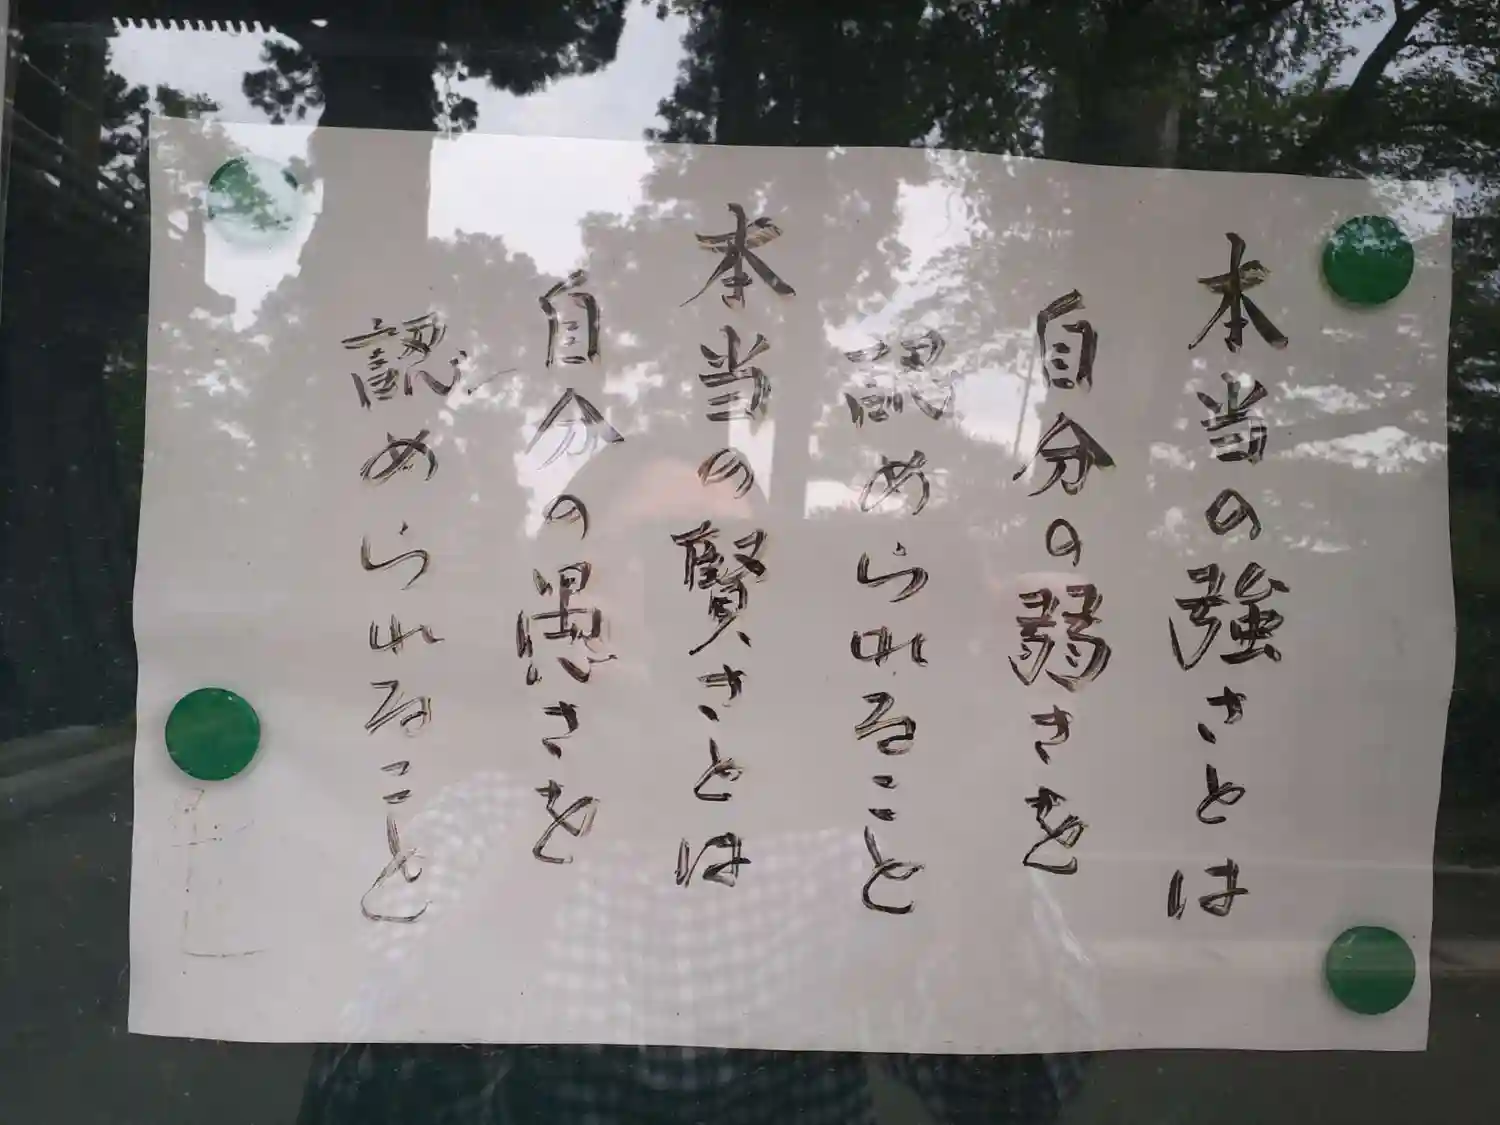 本当の強さとは
自分の弱さを
認められること
本当の賢さとは
自分の愚さを
認められること